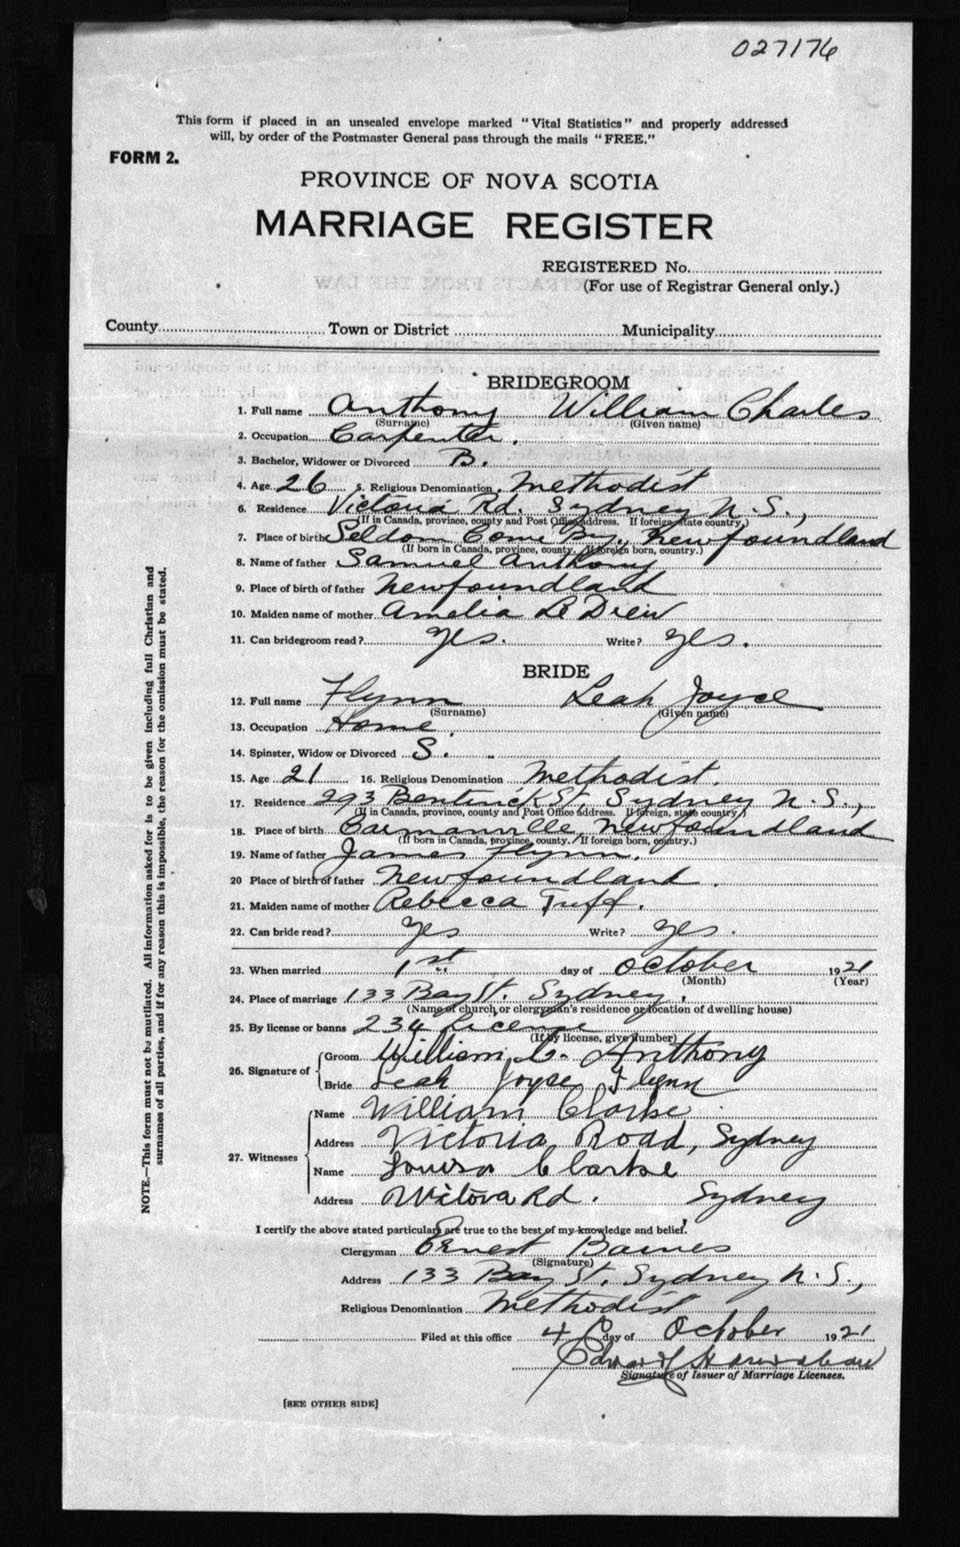 027176
This form if placed in an unsealed envelope marked "Vital Statistics" and properly addressed
will, by order of the Postmaster General pass through the mails "FREE."
FORM 2.
PROVINCE OF NOVA SCOTIA
MARRIAGE REGISTER
REGISTERED No.
(For use of Registrar General only.)
County Town or District Municipality
BRIDEGROOM
1. Full name Anthony William Charles
(Surname) (Given name)
2. Occupation Carpenter.
3. Bachelor, Widower or Divorced B.
4. Age 26 5. Religious Denomination Methodist
6. Residence Victoria Rd. Sydney N.S.,
(If in Canada, province, county and Post Office address. If foreign, state country.)
7. Place of birth Seldom Come By, Newfoundland
(If born in Canada, province, county. If foreign born, country.)
8. Name of father Samuel Anthony
9. Place of birth of father Newfoundland
10. Maiden name of mother Amelia Le Drew
11. Can bridegroom read? Yes. Write? Yes.
BRIDE
12. Full name Flynn Leah Joyce
(Surname) (Given name)
13. Occupation Home.
14. Spinster, Widow or Divorced S.
15. Age 21 16. Religious Denomination Methodist.
17. Residence 293 Bentinck St, Sydney N.S.,
(If in Canada, province, county and Post Office address. If foreign, state country.)
18. Place of birth Carmanville Newfoundland
(If born in Canada, province, county. If foreign born, country.)
19. Name of father James Flynn.
20 Place of birth of father Newfoundland.
21. Maiden name of mother Rebecca Tuff.
22. Can bride read? Yes Write? Yes.
23. When married 1st day of October 1921
(Month) (Year)
24. Place of marriage 133 Bay St. Sydney,
(Name of church, or clergyman's residence or location of dwelling house)
25. By license or banns 234 License
(If by license, give number)
26. Signature of Groom William C. Anthony
Bride Leah Joyce Flynn
27. Witnesses Name William Clarke
Address Victoria Road, Sydney
Name Louisa Clarke
Address Rd. Sydney
I certify the above stated particulars are true to the best of my knowledge and belief.
Clergyman Ernest Barnes
(Signature)
Address 133 Bay St. Sydney N.S.,
Religious Denomination Methodist
Filed at this office 4 day of October 1921
Edward
Signature of Issuer of Marriage Licenses.
[SEE OTHER SIDE]
NOTE.—This form must not be mutilated. All information asked for is to be given including full Christian and
surnames of all parties, and if for any reason this is impossible, the reason for the omission must be stated.